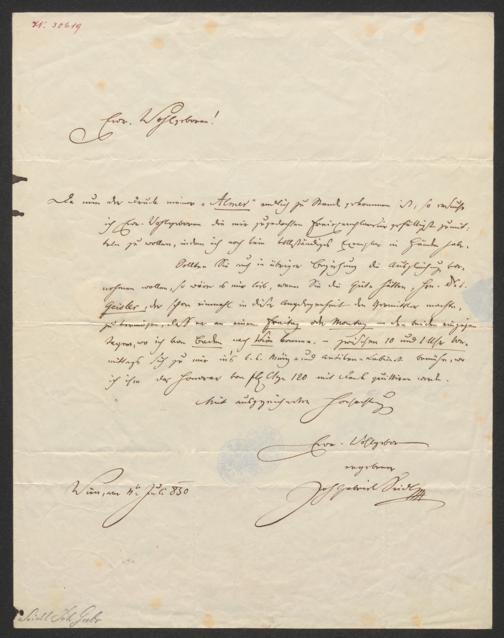 N. 30619
Euer Wohlgeboren!
Da nun der Druck meiner „Almer“ endlich zu Stande gekommen ist, so ersuche
ich Eur. Wohlgeboren die mir zugedachten Freiexemplare gefälligst zumit-
teln zu wollen, indem ich noch kein vollständiges Exemplar in Händen habe.
Sollten Sie auch in übriger Beziehung die
nehmen wollen, so wäre es mir lieb, wenn Sie die Güte hätten, Hn.
Geisler, der schon einmahl in dieser Angelegenheit den Vermittler machte,
zu, daß er an einem Freitag oder Montag – den beiden einzigen
Tagen, wo ich von Baden nach Wien komme – zwischen 10 und 1 Uhr Vor-
mittags sich zu mir in's k. k. Münz- und Antiken-Cabinet bemühe, wo
ich ihm das Honorar von fl. CMze 120 mit Dank quittiren werde.
Mit ausgezeichneter Hochachtung
Eur. Wohlgeboren
ergebener
Joh. Gabriel Seidl
Wien, am Juli 850
Seidl Joh. Gabr.